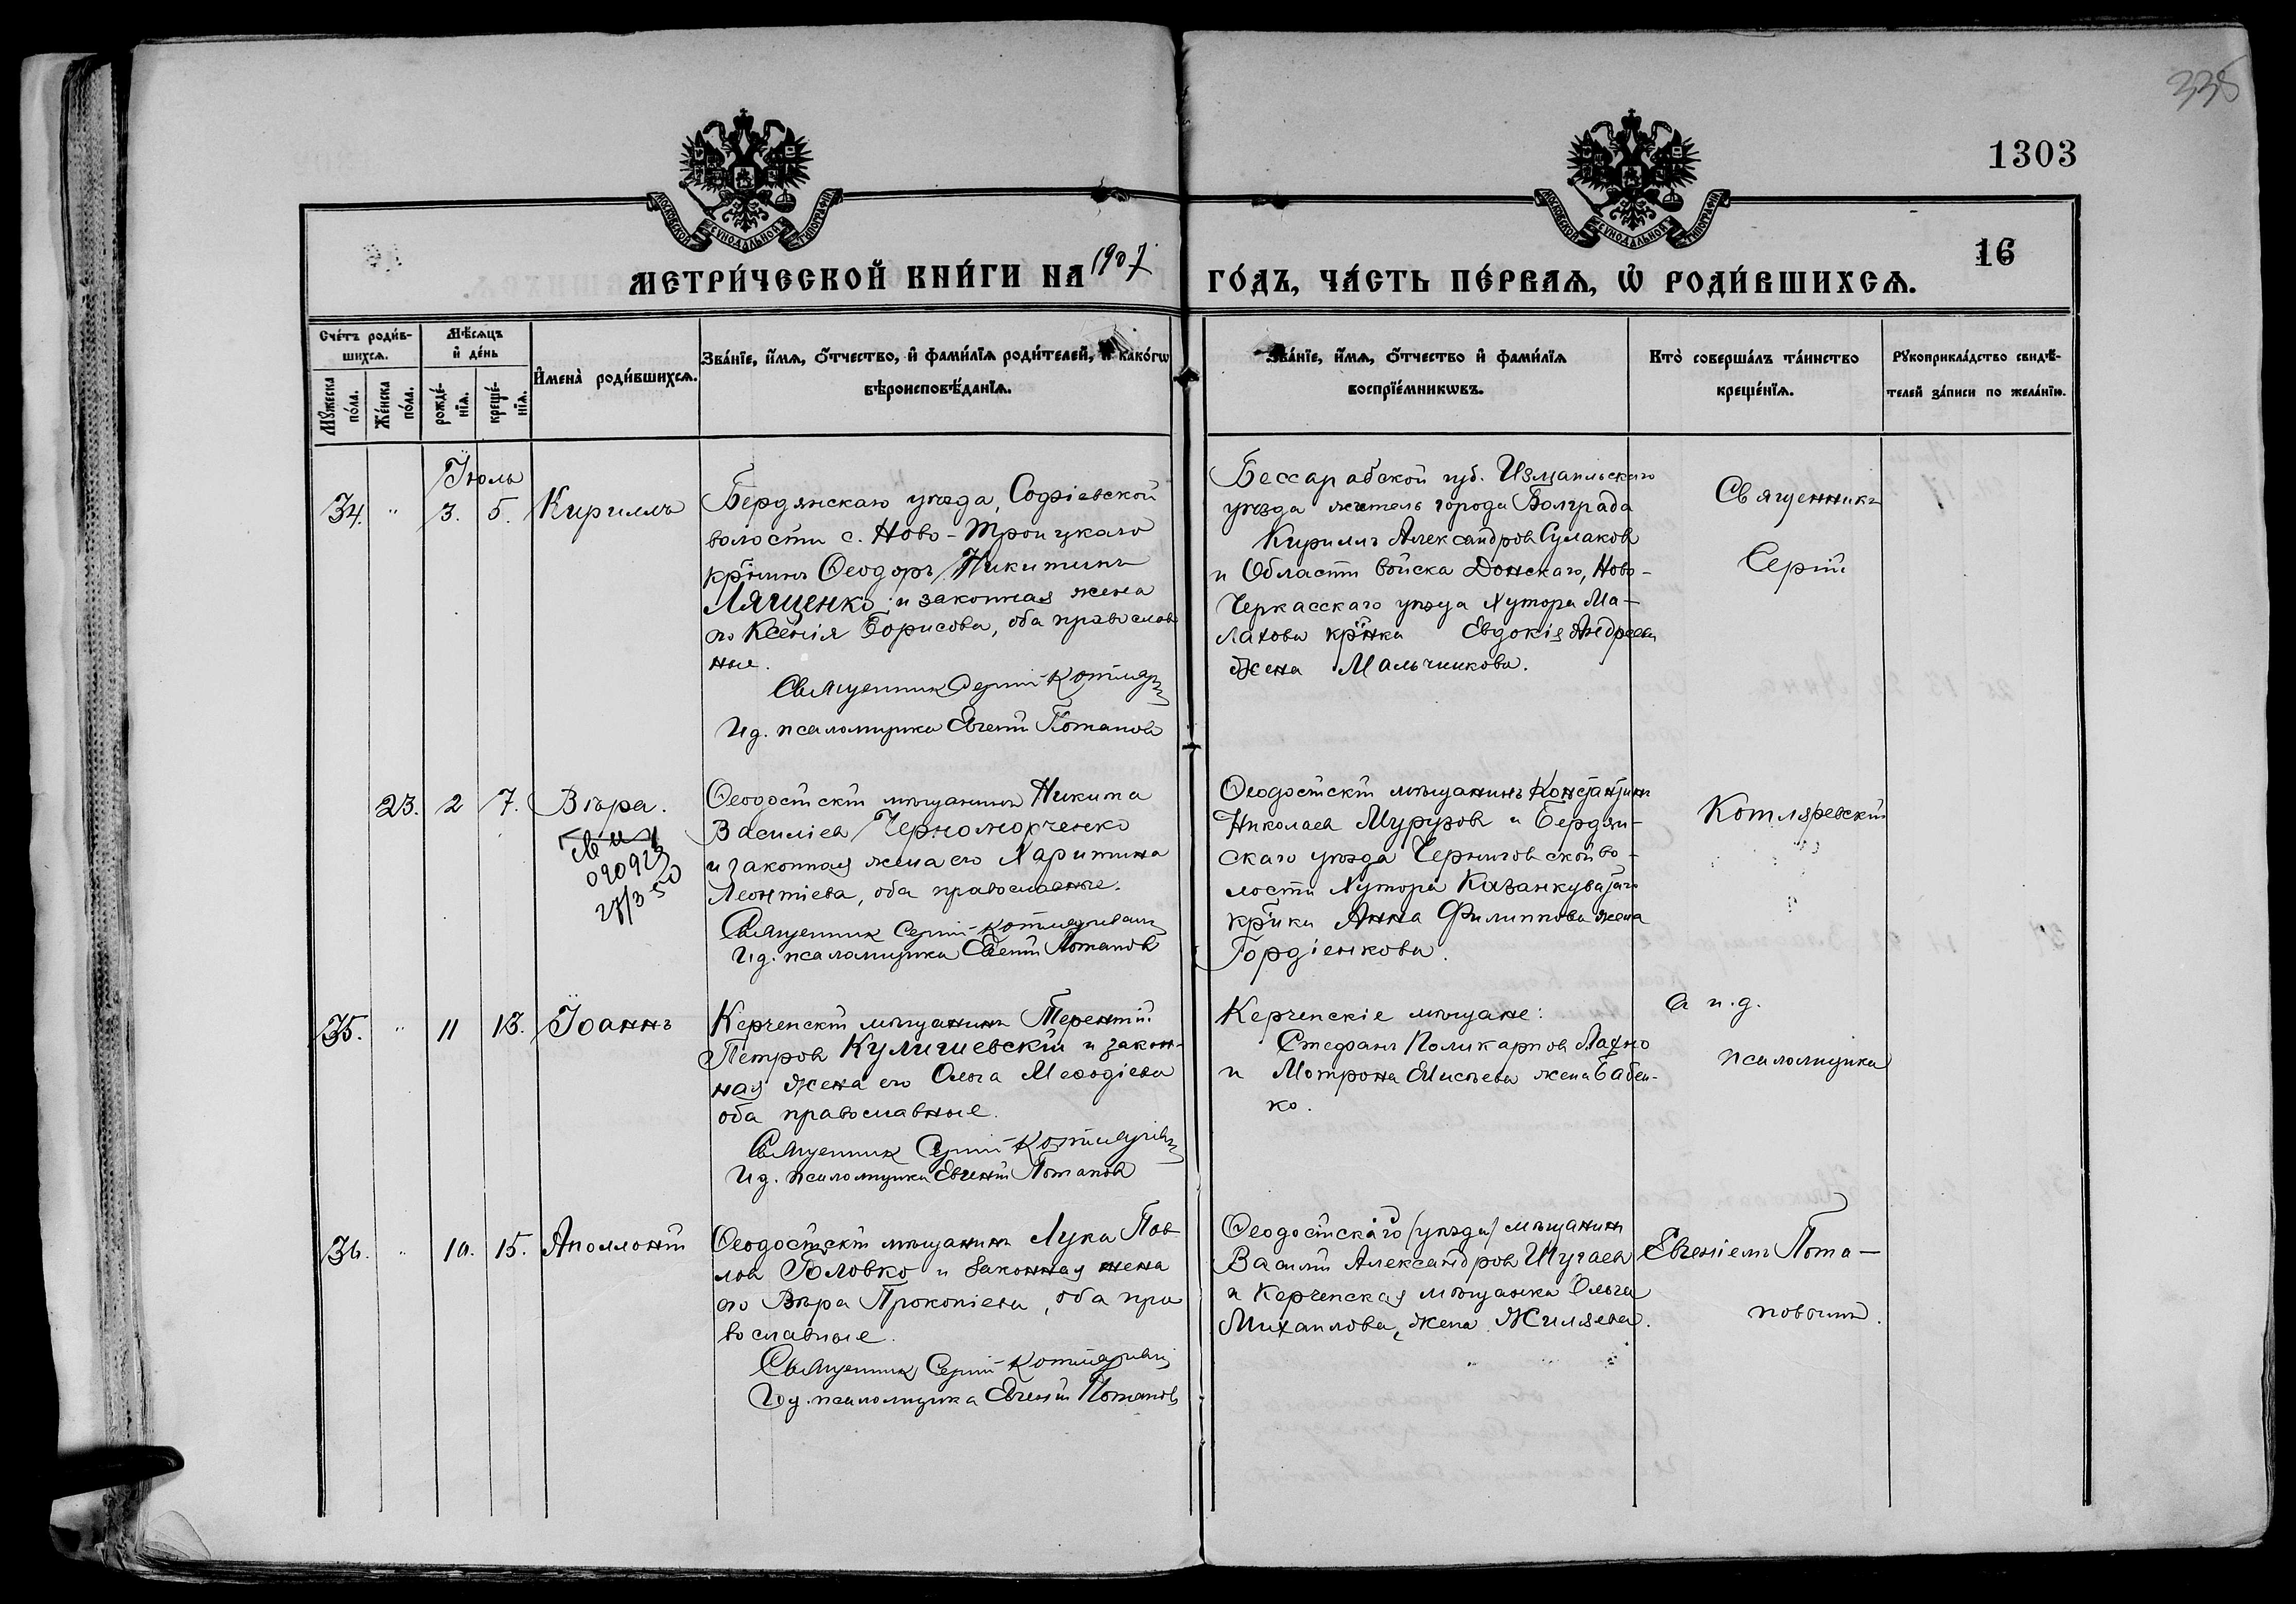 335
1303
16
МОСКОВСКОЙ СѴНОДАЛЬНОЙ ТИПОГРАФІИ
МОСКОВСКОЙ СѴНОДАЛЬНОЙ ТИПОГРАФІИ
МЕТРИ́ЧЕСКОЙ КНИ́ГИ НА 1907 ГО́ДЪ, ЧА́СТЬ ПЕ́РВАѦ, Ѽ РОДИ́ВШИХСѦ.
Сче́тъ роди́в-
шихсѧ.
Мꙋжеска
по́ла.
Же́нска
по́ла.
Мѣ́сѧцъ
и҆ де́нь
рожде́-
нїѧ.
креще́-
нїѧ.
И҆мена̀ роди́вшихсѧ.
Зва́нїе, и҆́мѧ, ѻ҆́тчество, и҆ фами́лїѧ роди́телей, и҆ како́гѡ
вѣроисповѣ́данїѧ.
Зва́нїе, и҆́мѧ, ѻ҆́тчество и҆ фами́лїѧ
воспрїе́мникѡвъ.
Кто̀ соверша́лъ та́инство
креще́нїѧ.
Рꙋкоприкла́дство свидѣ́-
телей за́писи по жела́нїю.
Іюль
34. " 3. 5. Кириллъ
Бердянскаго уѣзда, Софіевской
волости с. Ново-Троицкаго
кр̃нинъ Ѳеодоръ Никитинъ
Лященко и законная жена
его Ксенія Борисова, оба православ
ные.
Священник Сергій Котляр
И д. псаломщика Евгеній Потапов
Бессарабской губ. Измаильскаго
уѣзда житель города Болграда
Кириллъ Александров Сулаков
и Области Войска Донскаго, Ново-
черкасскаго уѣзда Хутора Ма-
лахова кр̃нка Евдокія Андреева
жена Мальчикова.
Священникъ
Сергій
23. 2 7. Вѣра.
090923
27/3 50
Ѳеодосійскій мѣщанинъ Никита
Василіев Черноморченко
и законная жена его Харитина
Леонтіева, оба православные.
Священник Сергій Котляревскій
И д. псаломщика Евгеній Потапов
Ѳеодосійскій мѣщанинъ Константинъ
Николаев Мурузов и Бердян-
скаго уѣзда Черниговской во-
лости Хутора
кр̃нка Анна Филиппова жена
Гордіенкова.
Котляревскій
35. " 11 13. Іоаннъ
Керченскій мѣщанинъ Терентій
Петров Кулишевскій и закон-
ная жена его Ольга Меѳодіева
оба православные.
Священник Сергій Котляревскій
И д. псаломщика Евгеній Потапов
Керченскіе мѣщане:
Стефанъ Поликарпов Лахно
и Мотрона Елисѣева жена Бабен-
ко.
а и. д.
псаломщика
36. " 10. 15. Аполлоній
Ѳеодосійскій мѣщанинъ Лука Пав
лов Головко и законная жена
его Вѣра Прокопіева, оба пра
вославные.
Священник Сергій Котляревскій
И д. псаломщика Евгеній Потапов
Ѳеодосійскаго (уѣзда) мѣщанин
Василій Александров Шугаев
и Керченская мѣщанка Ольга
Михаилова, жена Жиляева.
Евгеніем Пота-
повымъ.